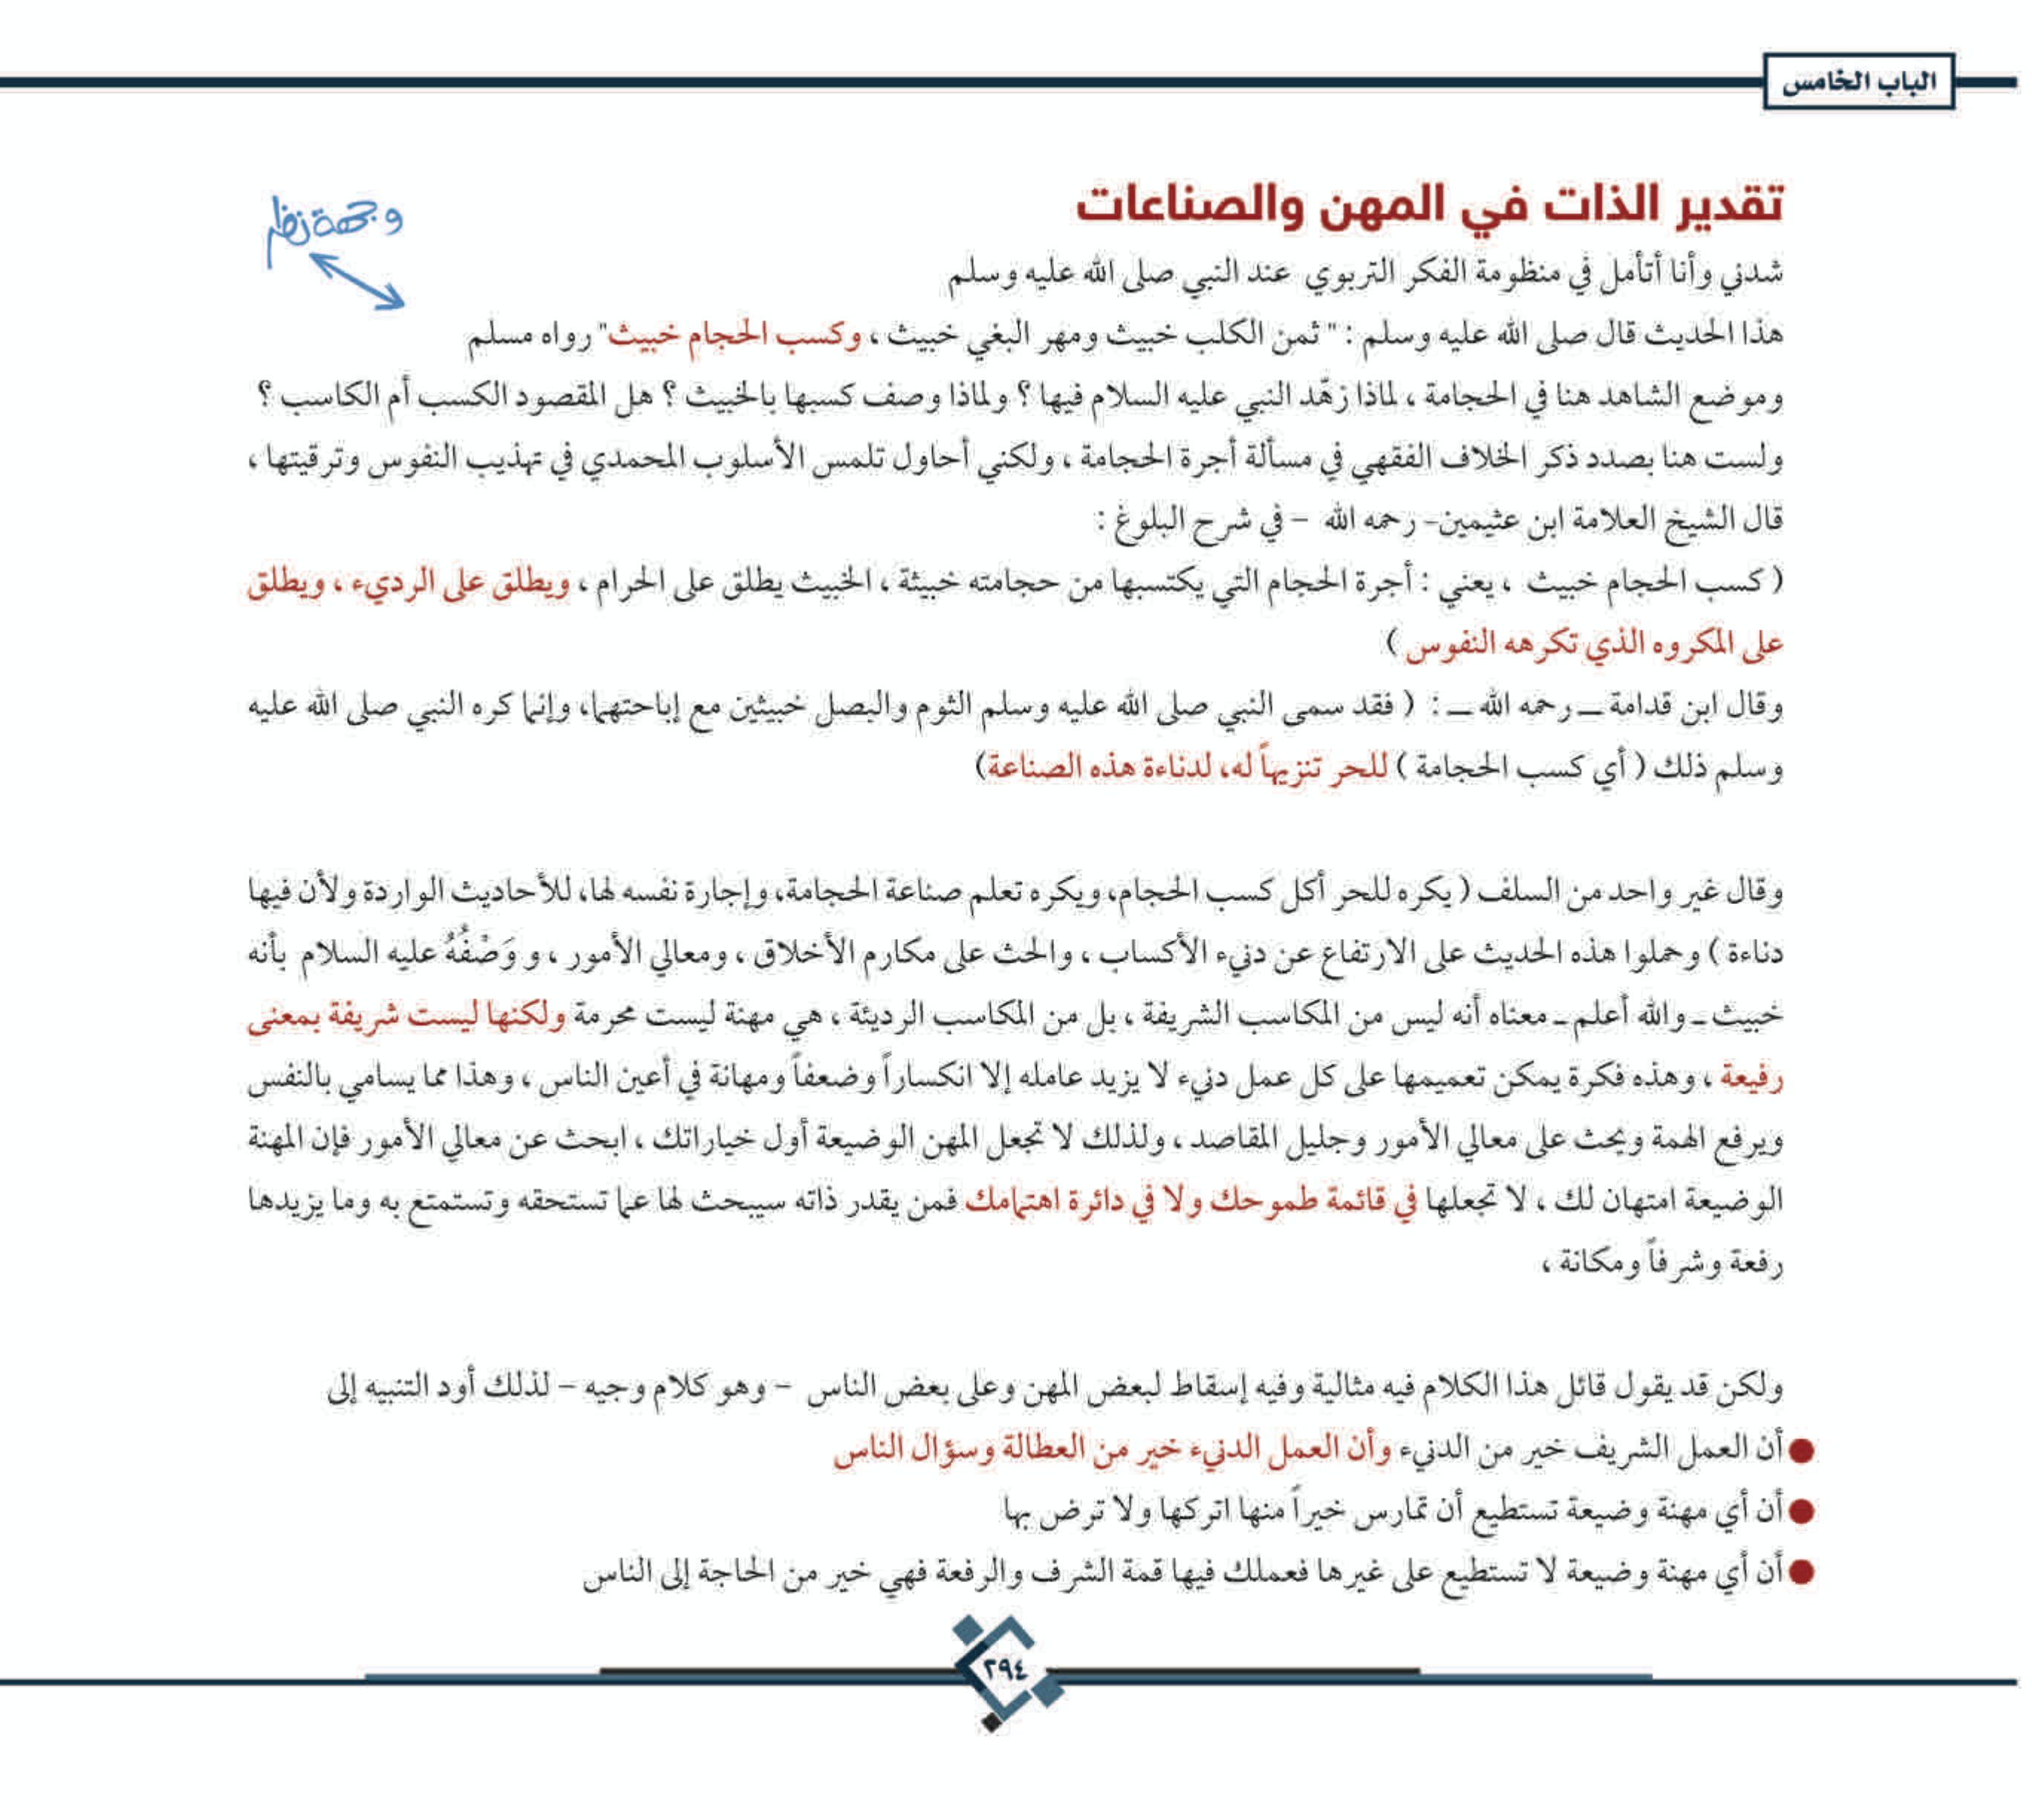 الباب الخامس
تقدير الذات في المهن والصناعات
وجهة نظر
شدني وأنا أتأمل في منظومة الفكر التربوي عند النبي صلى الله عليه وسلم
هذا الحديث قال صلى الله عليه وسلم : " ثمن الكلب خبيث ومهر البغي خبيث ، وكسب الحجام خبيث" رواه مسلم
وموضع الشاهد هنا في الحجامة ، لماذا زهّد النبي عليه السلام فيها ؟ ولماذا وصف كسبها بالخبيث ؟ هل المقصود الكسب أم الكاسب ؟
ولست هنا بصدد ذكر الخلاف الفقهي في مسألة أجرة الحجامة ، ولكني أحاول تلمس الأسلوب المحمدي في تهذيب النفوس وترقيتها ،
قال الشيخ العلامة ابن عثيمين- رحمه الله – في شرح البلوغ :
( كسب الحجام خبيث ، يعني : أجرة الحجام التي يكتسبها من حجامته خبيثة ، الخبيث يطلق على الحرام ، ويطلق على الرديء ، ويطلق
على المكروه الذي تكرهه النفوس )
وقال ابن قدامة ــ رحمه الله ــ : ( فقد سمى النبي صلى الله عليه وسلم الثوم والبصل خبيثين مع إباحتهما، وإنما كره النبي صلى الله عليه
وسلم ذلك ( أي كسب الحجامة ) للحر تنزيهاً له، لدناءة هذه الصناعة)
وقال غير واحد من السلف ( يكره للحر أكل كسب الحجام، ويكره تعلم صناعة الحجامة، وإجارة نفسه لها، للأحاديث الواردة ولأن فيها
دناءة ) وحملوا هذه الحديث على الارتفاع عن دنيء الأكساب ، والحث على مكارم الأخلاق ، ومعالي الأمور ، و وَصْفُهُ عليه السلام بأنه
خبيث ـ والله أعلم ـ معناه أنه ليس من المكاسب الشريفة ، بل من المكاسب الرديئة ، هي مهنة ليست محرمة ولكنها ليست شريفة بمعنى
رفيعة ، وهذه فكرة يمكن تعميمها على كل عمل دنيء لا يزيد عامله إلا انكساراً وضعفاً ومهانة في أعين الناس ، وهذا مما يسامي بالنفس
ويرفع الهمة ويحث على معالي الأمور وجليل المقاصد ، ولذلك لا تجعل المهن الوضيعة أول خياراتك ، ابحث عن معالي الأمور فإن المهنة
الوضيعة امتهان لك ، لا تجعلها في قائمة طموحك ولا في دائرة اهتمامك فمن يقدر ذاته سيبحث لها عما تستحقه وتستمتع به وما يزيدها
رفعة وشرفاً ومكانة ،
ولكن قد يقول قائل هذا الكلام فيه مثالية وفيه إسقاط لبعض المهن وعلى بعض الناس – وهو كلام وجيه – لذلك أود التنبيه إلى
● أن العمل الشريف خير من الدنيء وأن العمل الدنيء خير من العطالة وسؤال الناس
● أن أي مهنة وضيعة تستطيع أن تمارس خيراً منها اتركها ولا ترض بها
● أن أي مهنة وضيعة لا تستطيع على غيرها فعملك فيها قمة الشرف والرفعة فهي خير من الحاجة إلى الناس
٢٩٤